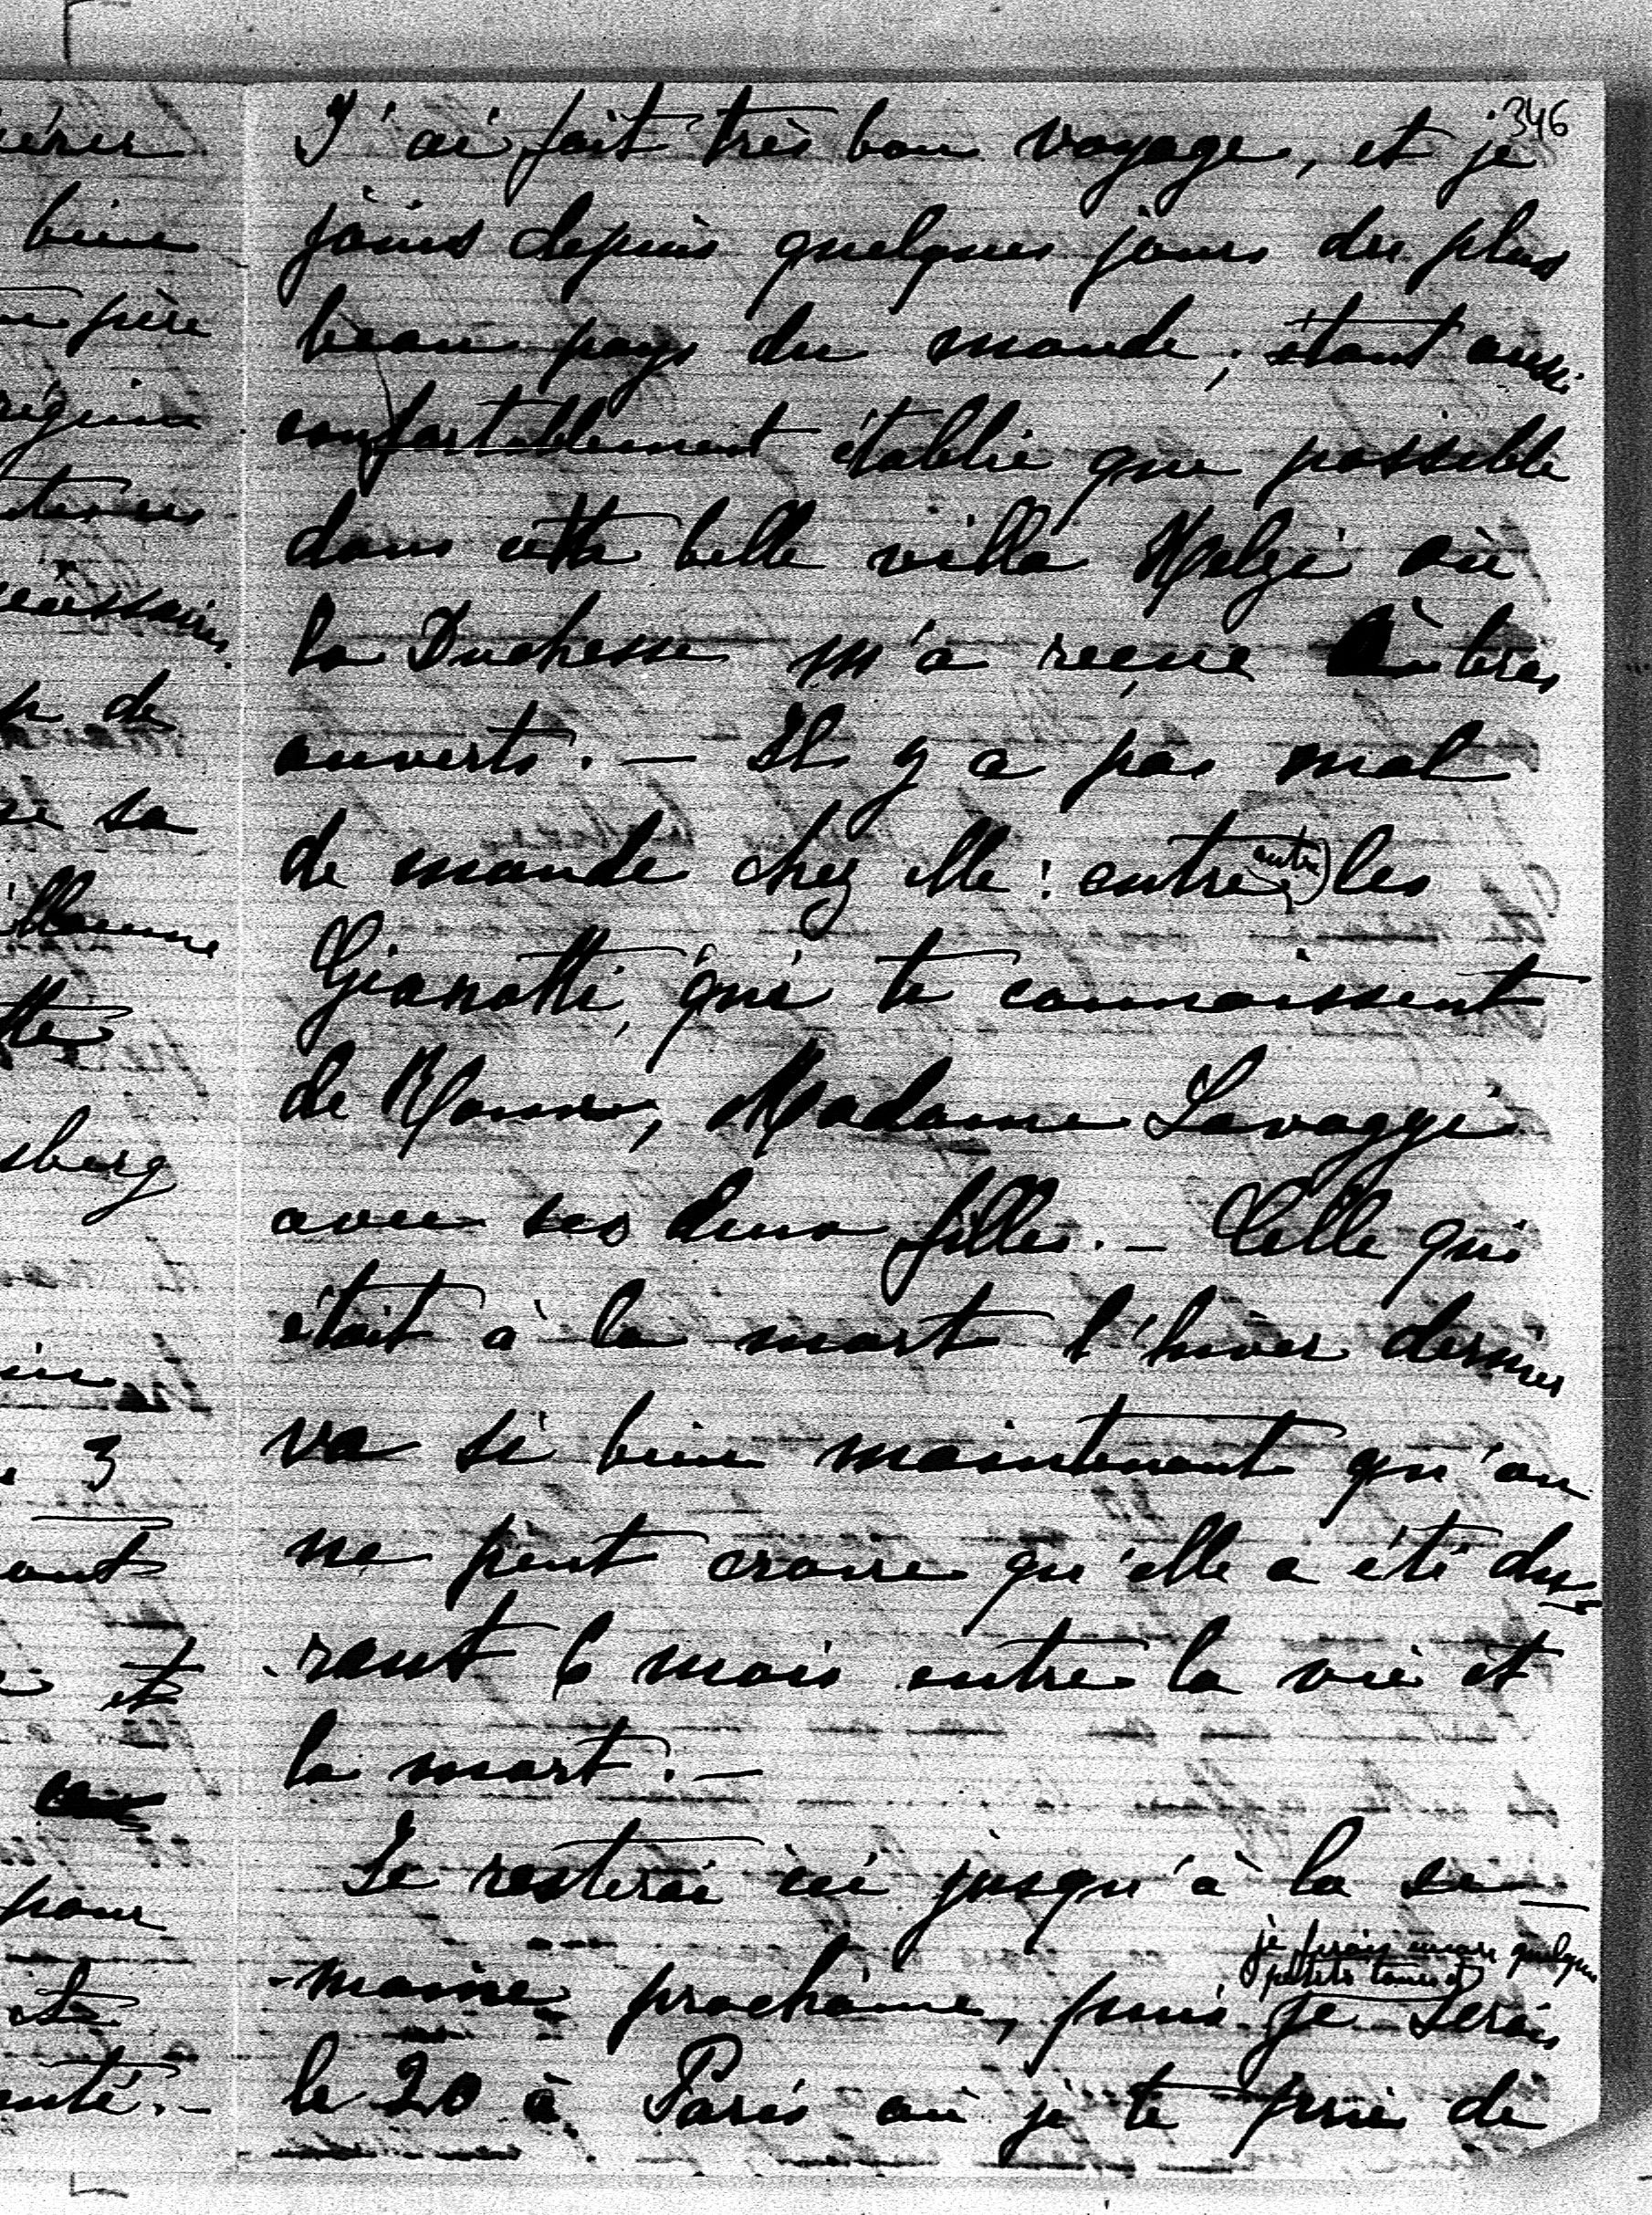 346
J'ai fait très bon voyage, et je
jouis depuis quelques jours du plus
beau pays du monde, étant aussi
confortablement établie que possible
dans cette belle villa Melzi où
la Duchesse m'a reçue à bras
ouverts. — Il y a pas mal
de monde chez elle : entre entre les
Gianotti, qui te connaissent
de Rome, Madame Lavaggi
avec ses deux filles. — Celle qui
était à la mort l'hiver dernier
va si bien maintenant qu'on
ne peut croire qu'elle a été du-
rant 6 mois entre la vie et
la mort. —
Je resterai ici jusqu'à la se-
je ferais encore quelques
petits tours et
-maine prochaine, puis je serais
le 20 à Paris où je te prie de
bien
père
régime
nécessaires
de
sa
sberg
3
et
pour